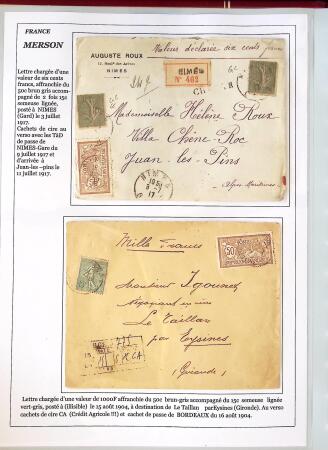 FRANCE
MERSON
Lettre chargée d'une
valeur de six cents
francs, affranchie du
50c brun gris accom-
pagné de 2 fois 15c
semeuse lignée,
posté à NIMES
(Gard) le 3 juillet
1917.
Cachets de cire au
verso avec les TàD
de passe de
NIMES-Gare du
9 juillet 1917 et
d'arrivée à
Juan-les-pins le
11 juillet 1917.
AUGUSTE ROUX
NIMES
Valeur déclarée six cents francs
R
NIMES
N° 462
Ch
Mademoiselle Hélène Roux
Villa Chêne-Roc
Juan-les-Pins
Alpes-Maritimes
NIMES
17
Mille Francs
50
Monsieur Igounet
Négociant en vins
Le Taillan
par Eysines
(Gironde)
Lettre chargée d'une valeur de 1000F affranchie du 50c brun-gris accompagné du 15c semeuse lignée
vert-gris, posté à (illisible) le 15 août 1904, à destination de Le Taillan parEysines (Gironde). Au verso
cachets de cire CA (Crédit Agricole !!!) et cachet de passe de BORDEAUX du 16 août 1904.